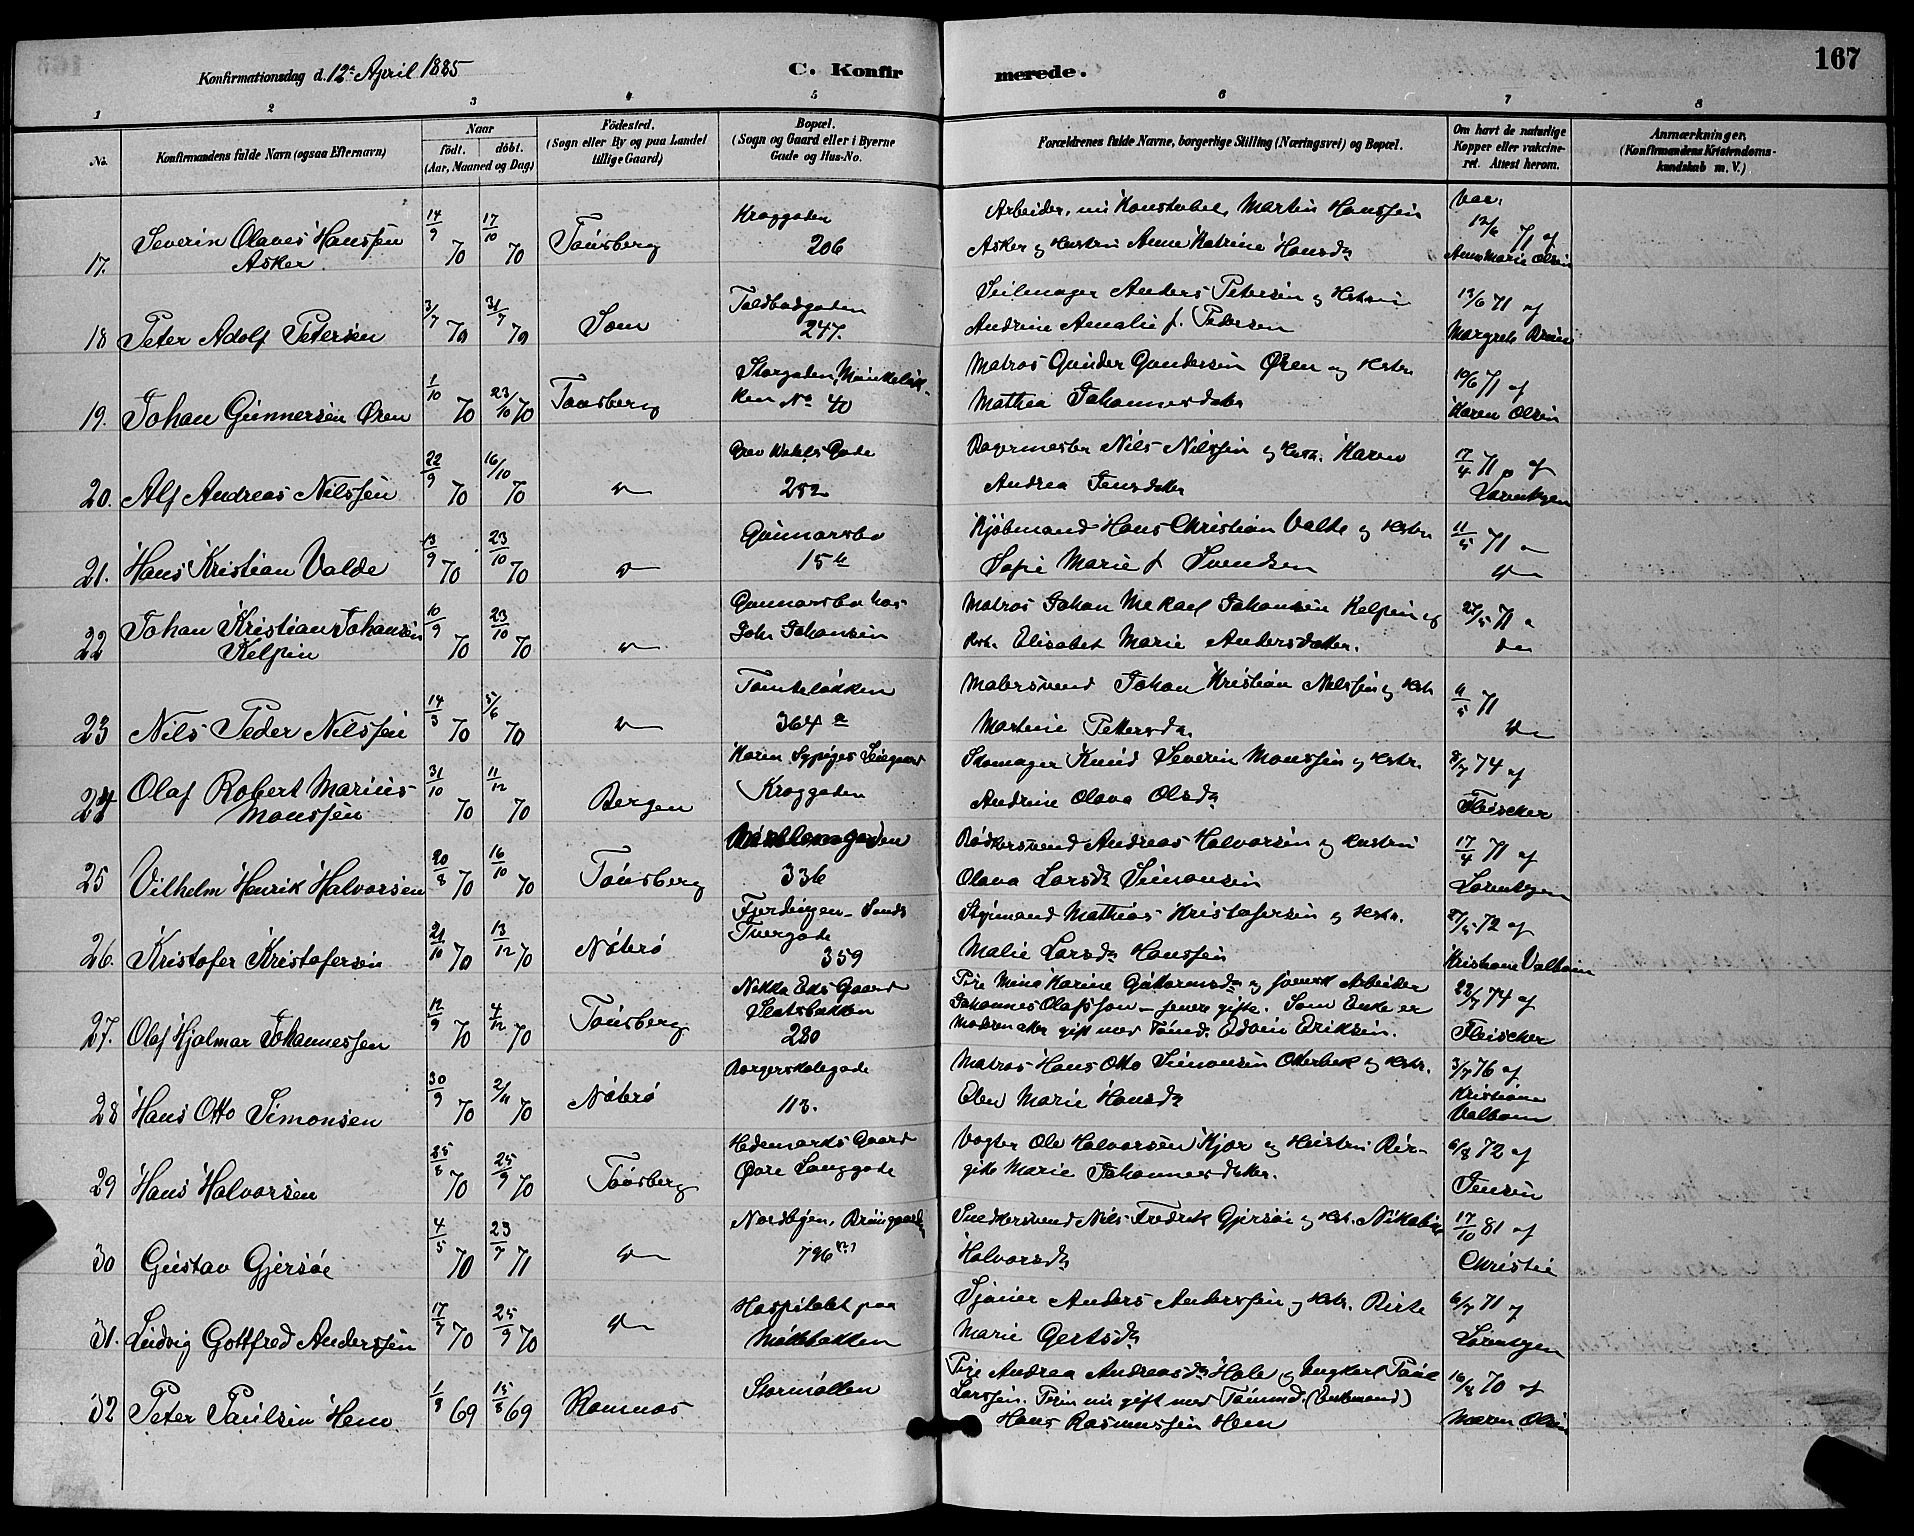 Konfirmationsdag d. 12te April 1885
C. Konfirmerede.
167
1 2 3 4 5 6 7 8
No.
Konfirmandens fulde Navn (ogsaa Efternavn)
Naar
födt. döbt.
(Aar, Maaned og Dag)
Födested.
(Sogn eller By og paa Landet
tillige Gaard)
Bopæl.
(Sogn og Gaard eller i Byerne
Gade og Hus-No.
Forældrenes fulde Navne, borgerlige Stilling (Næringsvei) og Bopæl.
Om havt de naturlige
Kopper eller vakcine-
ret. Attest herom.
Anmærkninger,
(Konfirmandens Kristendoms-
kundskab m. V.)
17. Severin Olaves Hanssen
Asker
14/9 70 17/10 70 Tönsberg
Kroggaden
206
Arbeider, nu Konstabel, Martin Hanssen
Asker og Hustru Anne Katrine Hansdr
Vac.
12/6 71 af
Anne Marie Olsen
18 Peter Adolf Petersen
3/7 70 31/7 70 Sem
Toldbodgaden
247.
Seilmager Anders Petersen og Hstru
Andrine Amalie f. Pedersen
13/6 71 af
Margrete
19. Johan Gunnersen Øren
1/10 70 23/10 70 Tönsberg
Storgaden, Munkeløk-
ken No 40
Matros Gunder Gundersen Øren og Hstr.
Mathea Johannesdatter
19/6 71 af
Karen Olsen
20. Alf Andreas Nilssen
22/9 70 16/10 70 "
Gade
252
Nils Nilssen og Hstr. Karen
Andrea Jensdatter
17/4 71 af
Lorentzen
21. Hans Kristian Valde
13/9 70 23/10 70 "
Gunnarsbo
15 b
Kjøbmand Hans Christian Valde og Hstr.
Sofie Marie f. Svendsen
11/5 71 "
"
22 Johan Kristian Johansen
Kelpin
10/9 70 23/10 70 "
Gunnarsbo hos
Johan Mekael Johansen Kelpin og
Johansen
Matros
Hstr. Elisabet Marie Andersdatter.
27/5 71 "
"
23 Nils Peder Nilssen
14/3 70 5/6 70 "
Tomteløkken
364 a
Malersvend Johan Kristian Nilssen og Hstr
Martine Pettersdr.
4/5 71
"
24 Olaf Robert Marius
Monssen
31/10 70 11/12 70 Bergen
Karen
Kroggaden
Skomager Knud Severin Monssen og Hstr.
Andrine Olava Olsdr
8/7 74 af
Fleischer
25 Vilhelm Henrik Halvorsen
20/8 70 16/10 70 Tönsberg
336
Bødkersvend Andreas Halvorsen og Hustru
Olava Larsdr Simonsen
17/4 71 af
Lorentzen
26. Kristofer Kristofersen
21/10 70 13/12 70 Nøterø
Fjerdingen
Tvergade
359
Styrmand Mathias Kristofersen og Hstr.
Malie Larsdr Hanssen
27/5 72 af
Kristiane Valbom
27. Olaf Hjalmar Johannessen
12/9 70 4/12 70 Tönsberg
Gaard
Slotsbakken
280
Pige Mina Karine Guttormsdr og svensk Arbeider
Johannes Olafsson – senere gifte. Som Enke er
Moderen atter gift med Tömmd. Edvin Eriksen.
22/7 74 af
Fleischer
28 Hans Otto Simonsen
30/9 70 2/11 70 Nøterø
Borgerskolegade
113.
Matros Hans Otto Simonsen Otterbek og Hstr.
Elen Marie Hansdr
3/7 76 af
Kristiane
Valbom
29 Hans Halvorsen
25/8 70 25/9 70 Tönsberg
Hedemarks Gaard
Øvre Langgade
Vogter Ole Halvorsen Kjær og Hustru Bir-
gitte Marie Johannesdatter.
6/8 72 af
Jensen
30 Gustav Gjersöe
4/5 70 23/7 71 "
Nordbyen,
796
Snedkersvend Nils Fredrik Gjersöe og Hstr. Nikoline
Halvorsdr
17/10 81 af
Christie
31. Ludvig Gottfred Anderssen
17/7 70 25/9 70 "
Hospitalet paa
Møllebakken
Sjauer Anders Anderssen og Hstr. Birte
Marie Gertsdr
6/7 71 af
Lorentzen
32 Peter Paulsen Hem
1/3 69 15/8 69 Ramnæs
Stormøllen
Pige Andrea Andreasdr Hale og Ungkarl Paul
Larssen. Pigen nu gift med Tömmd. (Enkemand)
Hans Rasmussen Hem
16/8 70 af
Maren Olsen